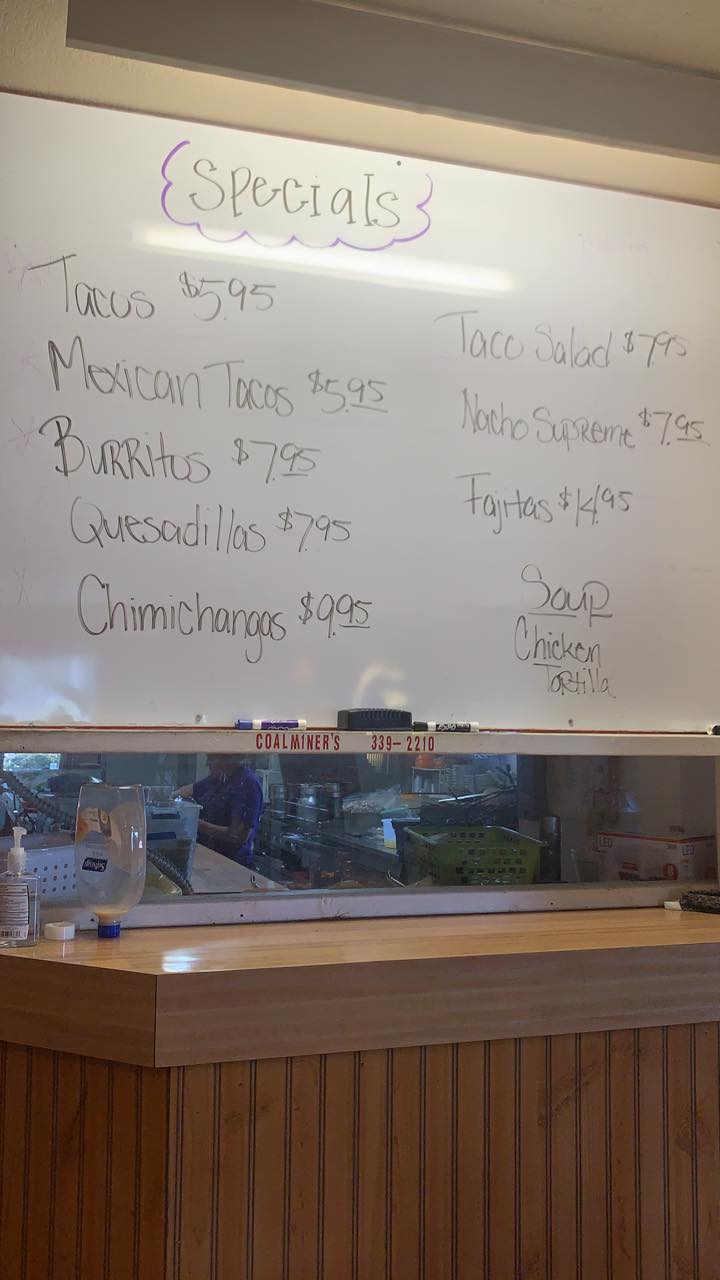 Specials
Tacos $5.95
Mexican Tacos $5.95
Burritos $7.95
Quesadillas $7.95
Chimichangas $9.95
Taco Salad $7.95
Nacho Supreme $7.95
Fajitas $14.95
Soup
Chicken
Tortilla
COALMINER'S 339-2210
EXPO
PURELL
LED